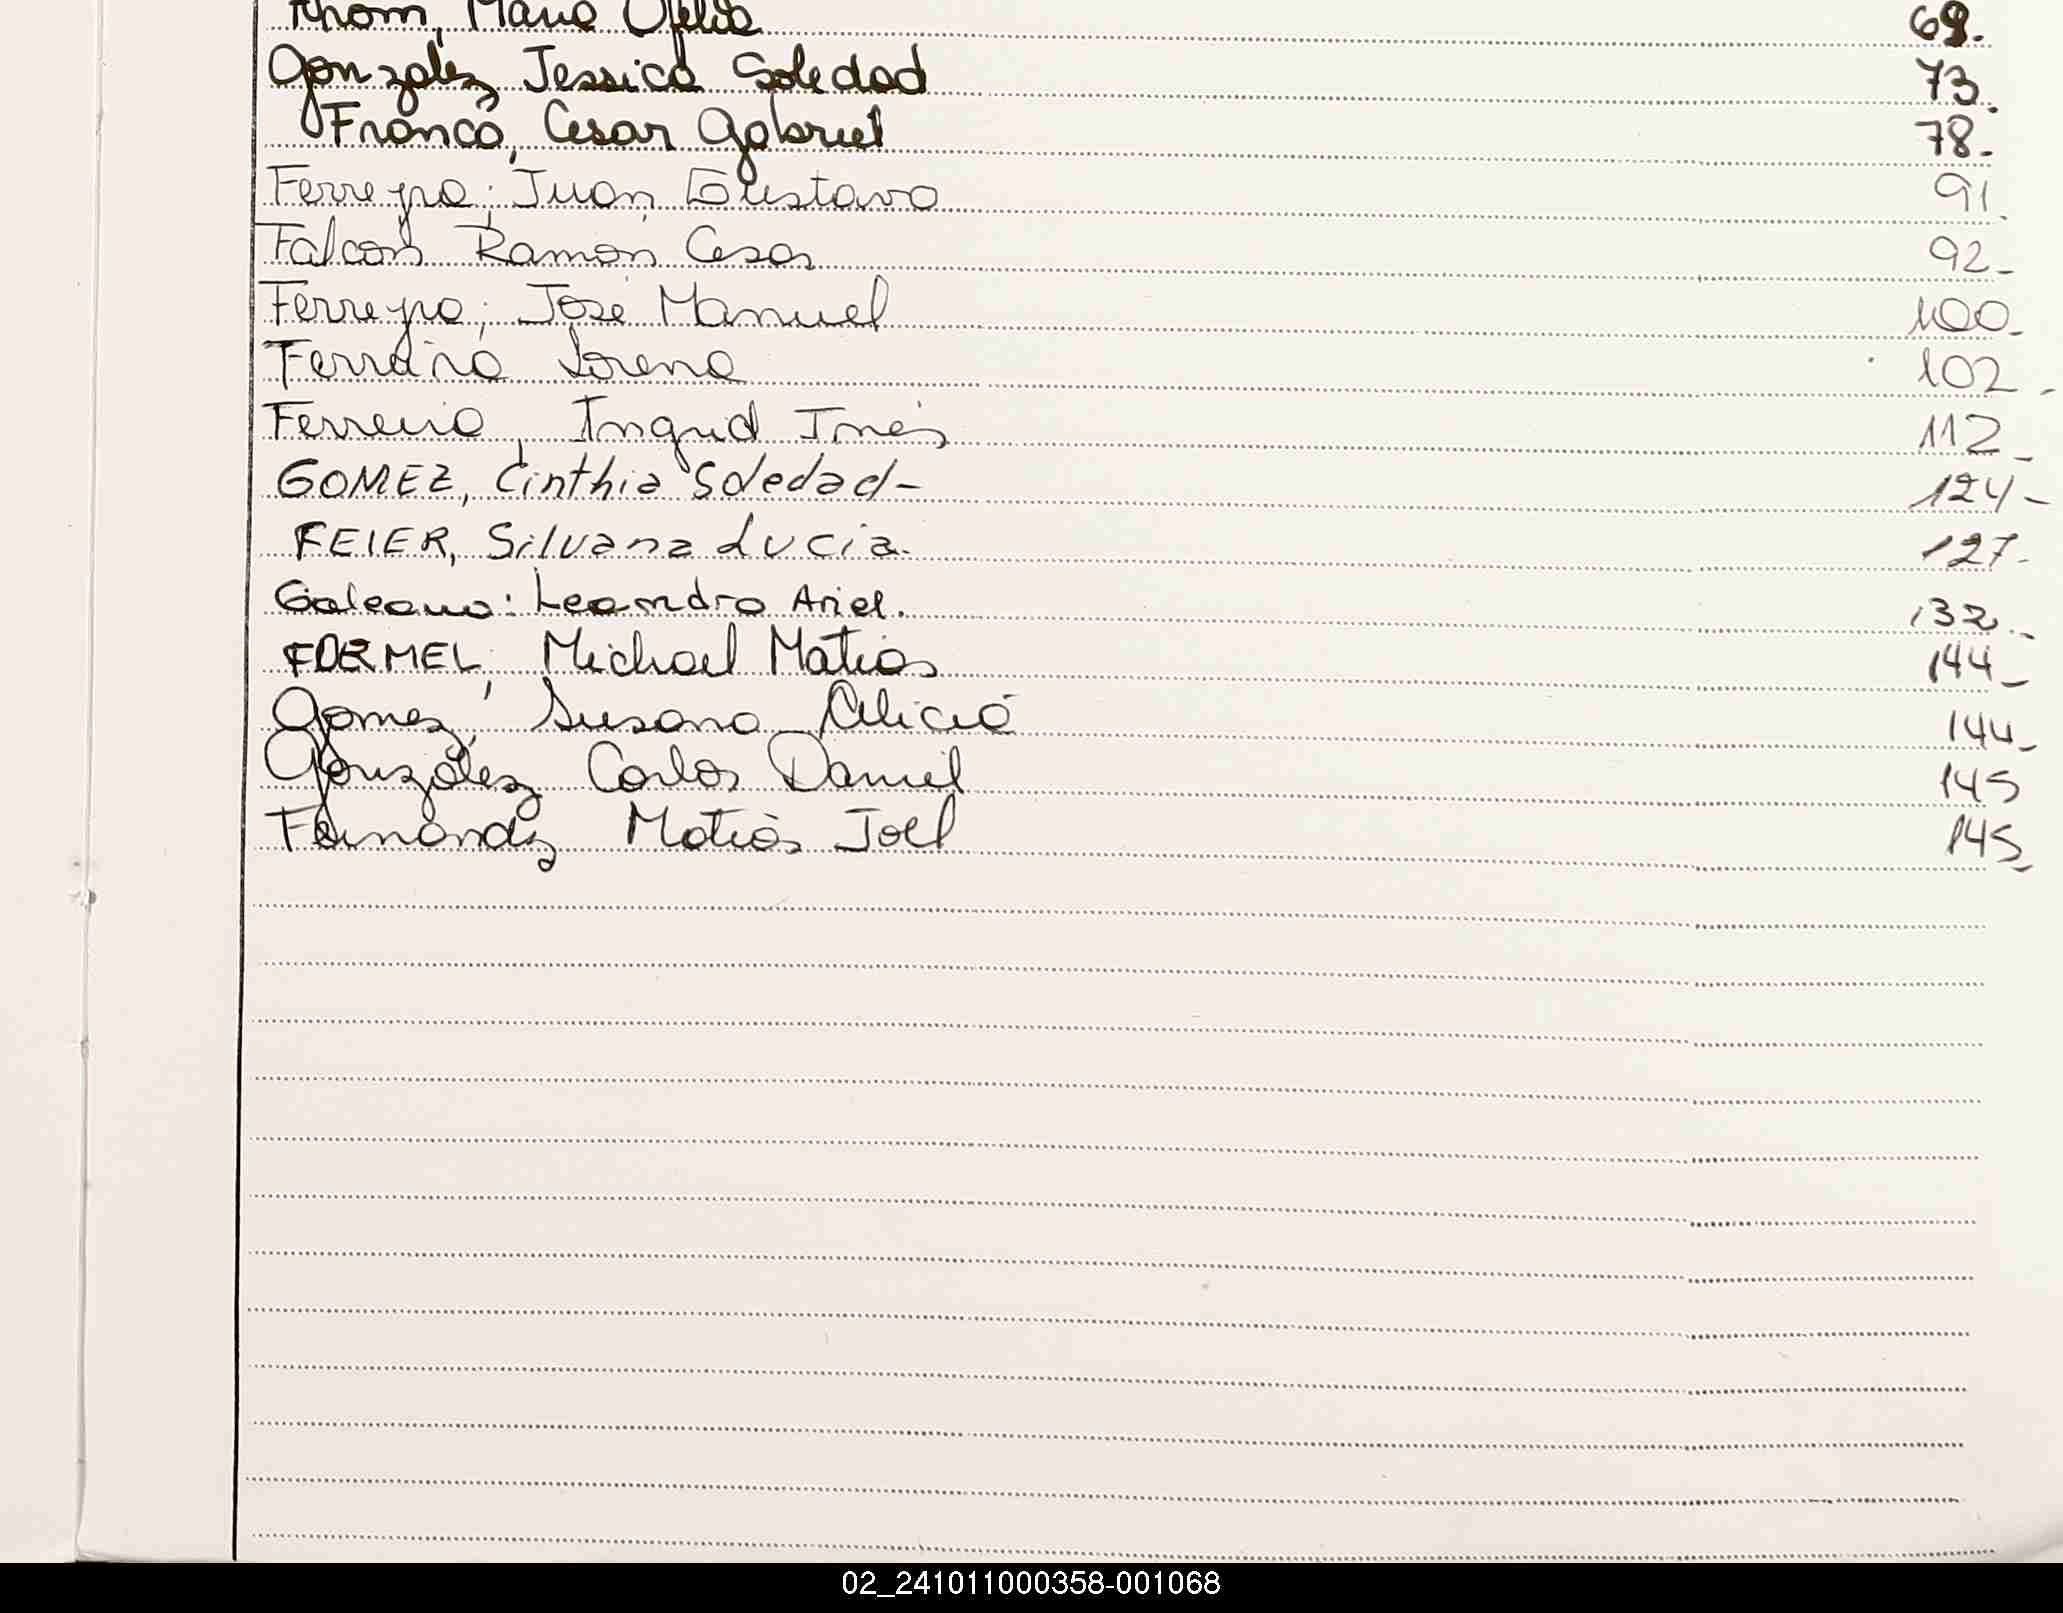 Maria Ofelia 69.
Gonzalez Jessica Soledad 73.
Franco, Cesar Gabriel 78.
Ferreyra; Juan Gustavo 91.
Falcon Ramón Cesar 92-
Ferreyra; José Manuel 100-
Ferraira Lorena 102-
Ferreira, Ingrid Inés 112-
GOMEZ, Cinthia Soledad- 124-
FEIER, Silvana Lucia. 127-
Galeano: Leandro Ariel. 132.-
Michael Matias 144-
Gomez, Susana Alicia 144-
González Carlos Daniel 145
Fernandez Matias Joel 145-
02_241011000358-001068